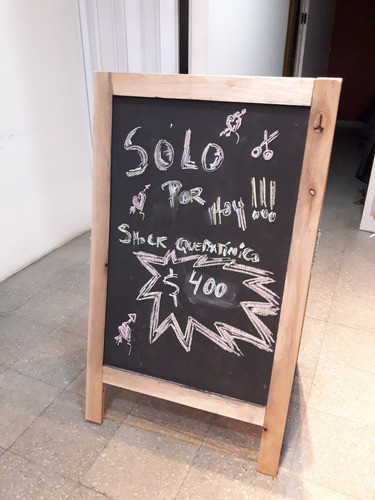 SÓLO
POR
HOY!!!
SHOCK QUERATÍNICO
$400